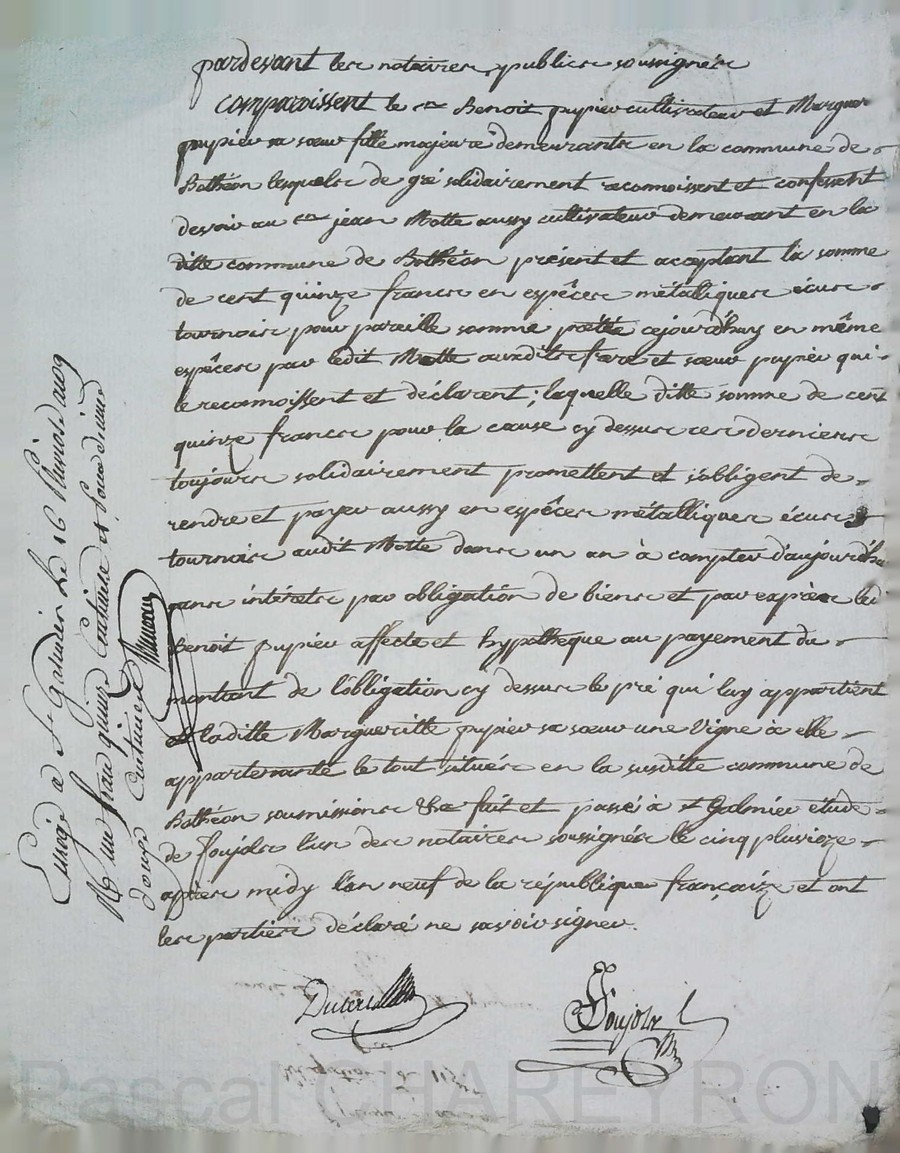 pardevant les notaires publics soussignés
comparoissent le cen Benoit pupier cultivateur et Marguer
pupier sa sœur fille majeure demeurants en la commune de
Bothéon lesquels de gré solidairement reconnoissent et confessent
devoir au cen jean Motte aussy cultivateur demeurant en la
ditte commune de Bothéon présent et acceptant la somme
de cent quinze francs en espêces métalliques écus
tournois pour pareille somme prêtée cejourdhuy en même
espêces par ledit Motte auxdits frere et sœur pupier qui
le reconnoissent et déclarent; laquelle ditte somme de cent
quinze francs pour la cause cy dessus ces derniers
toujours solidairement promettent et s'obligent de
rendre et payer aussy en espêces métalliques écus
tournois audit Motte dans un an à compter d'aujourdhu
sans intérets par obligation de biens et par exprès led
Benoit pupier affecte et hypothèque au payement du
montant de l'obligation cy dessus le pré qui luy appartient
et laditte Margueritte pupier sa sœur une vigne à elle
appartenante le tout situés en la susditte commune de
Bothéon soumissions &a fait et passé à st Galmier étude
de Poujols l'un des notaires soussignés le cinq pluvioze
après midy l'an neuf de la république françaize et ont
les parties déclaré ne savoir signer.
Poujols
Enregé à St Galmier le 16 Pluviose an 9
R un franc quinze centimes et pour decime
douze centimes
Pascal CHAREYRON